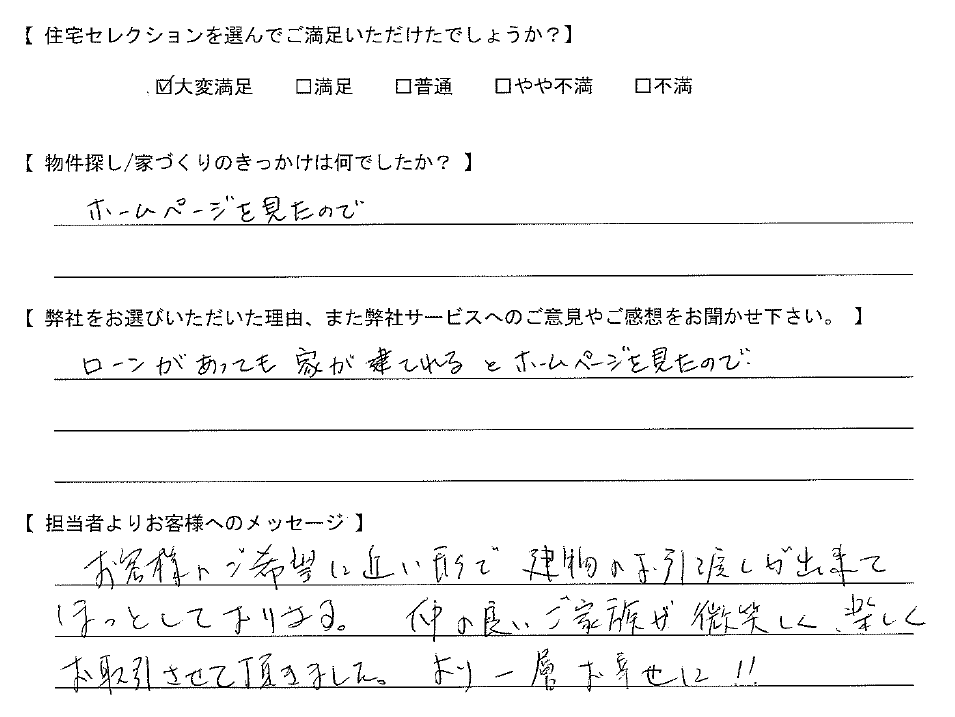 【 住宅セレクションを選んでご満足いただけたでしょうか？】
☑大変満足 □満足 □普通 □やや不満 □不満
【 物件探し/家づくりのきっかけは何でしたか？ 】
ホームページを見たので
【 弊社をお選びいただいた理由、また弊社サービスへのご意見やご感想をお聞かせ下さい。 】
ローンがあっても 家が建てれる と ホームページを見たので
【 担当者よりお客様へのメッセージ 】
お客様のご希望に近い形で 建物のお引渡しが出来て
ほっとしております。 仲の良いご家族が 微笑しく、楽しく
お取引させて頂きました。 より一層お幸せに!!